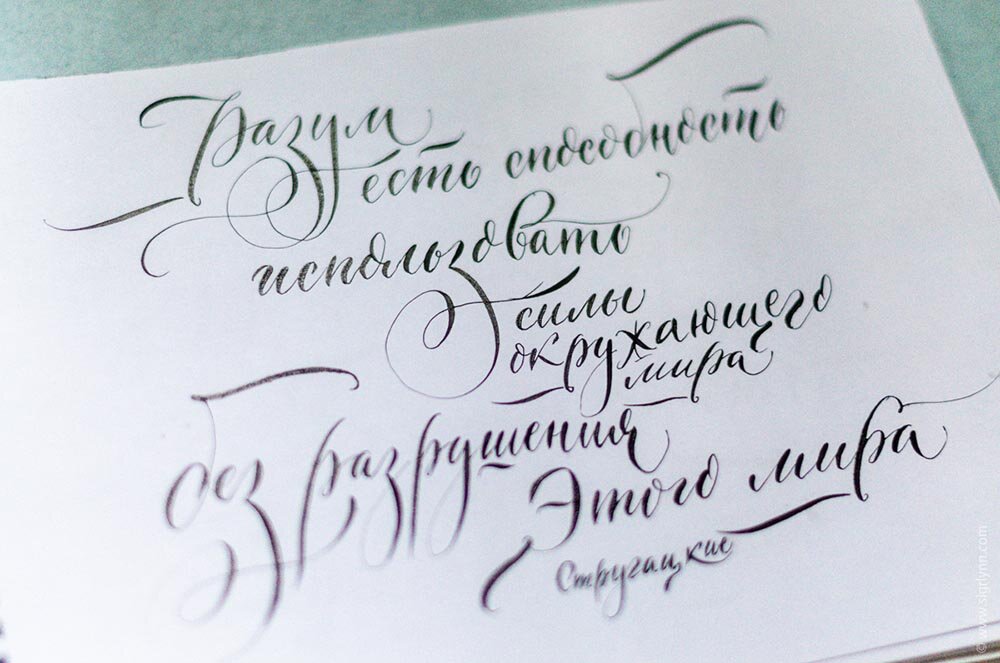 Разум
есть способность
использовать
силы
окружающего
мира
без разрушения
Этого мира
Стругацкие
© www.sigrlynn.com